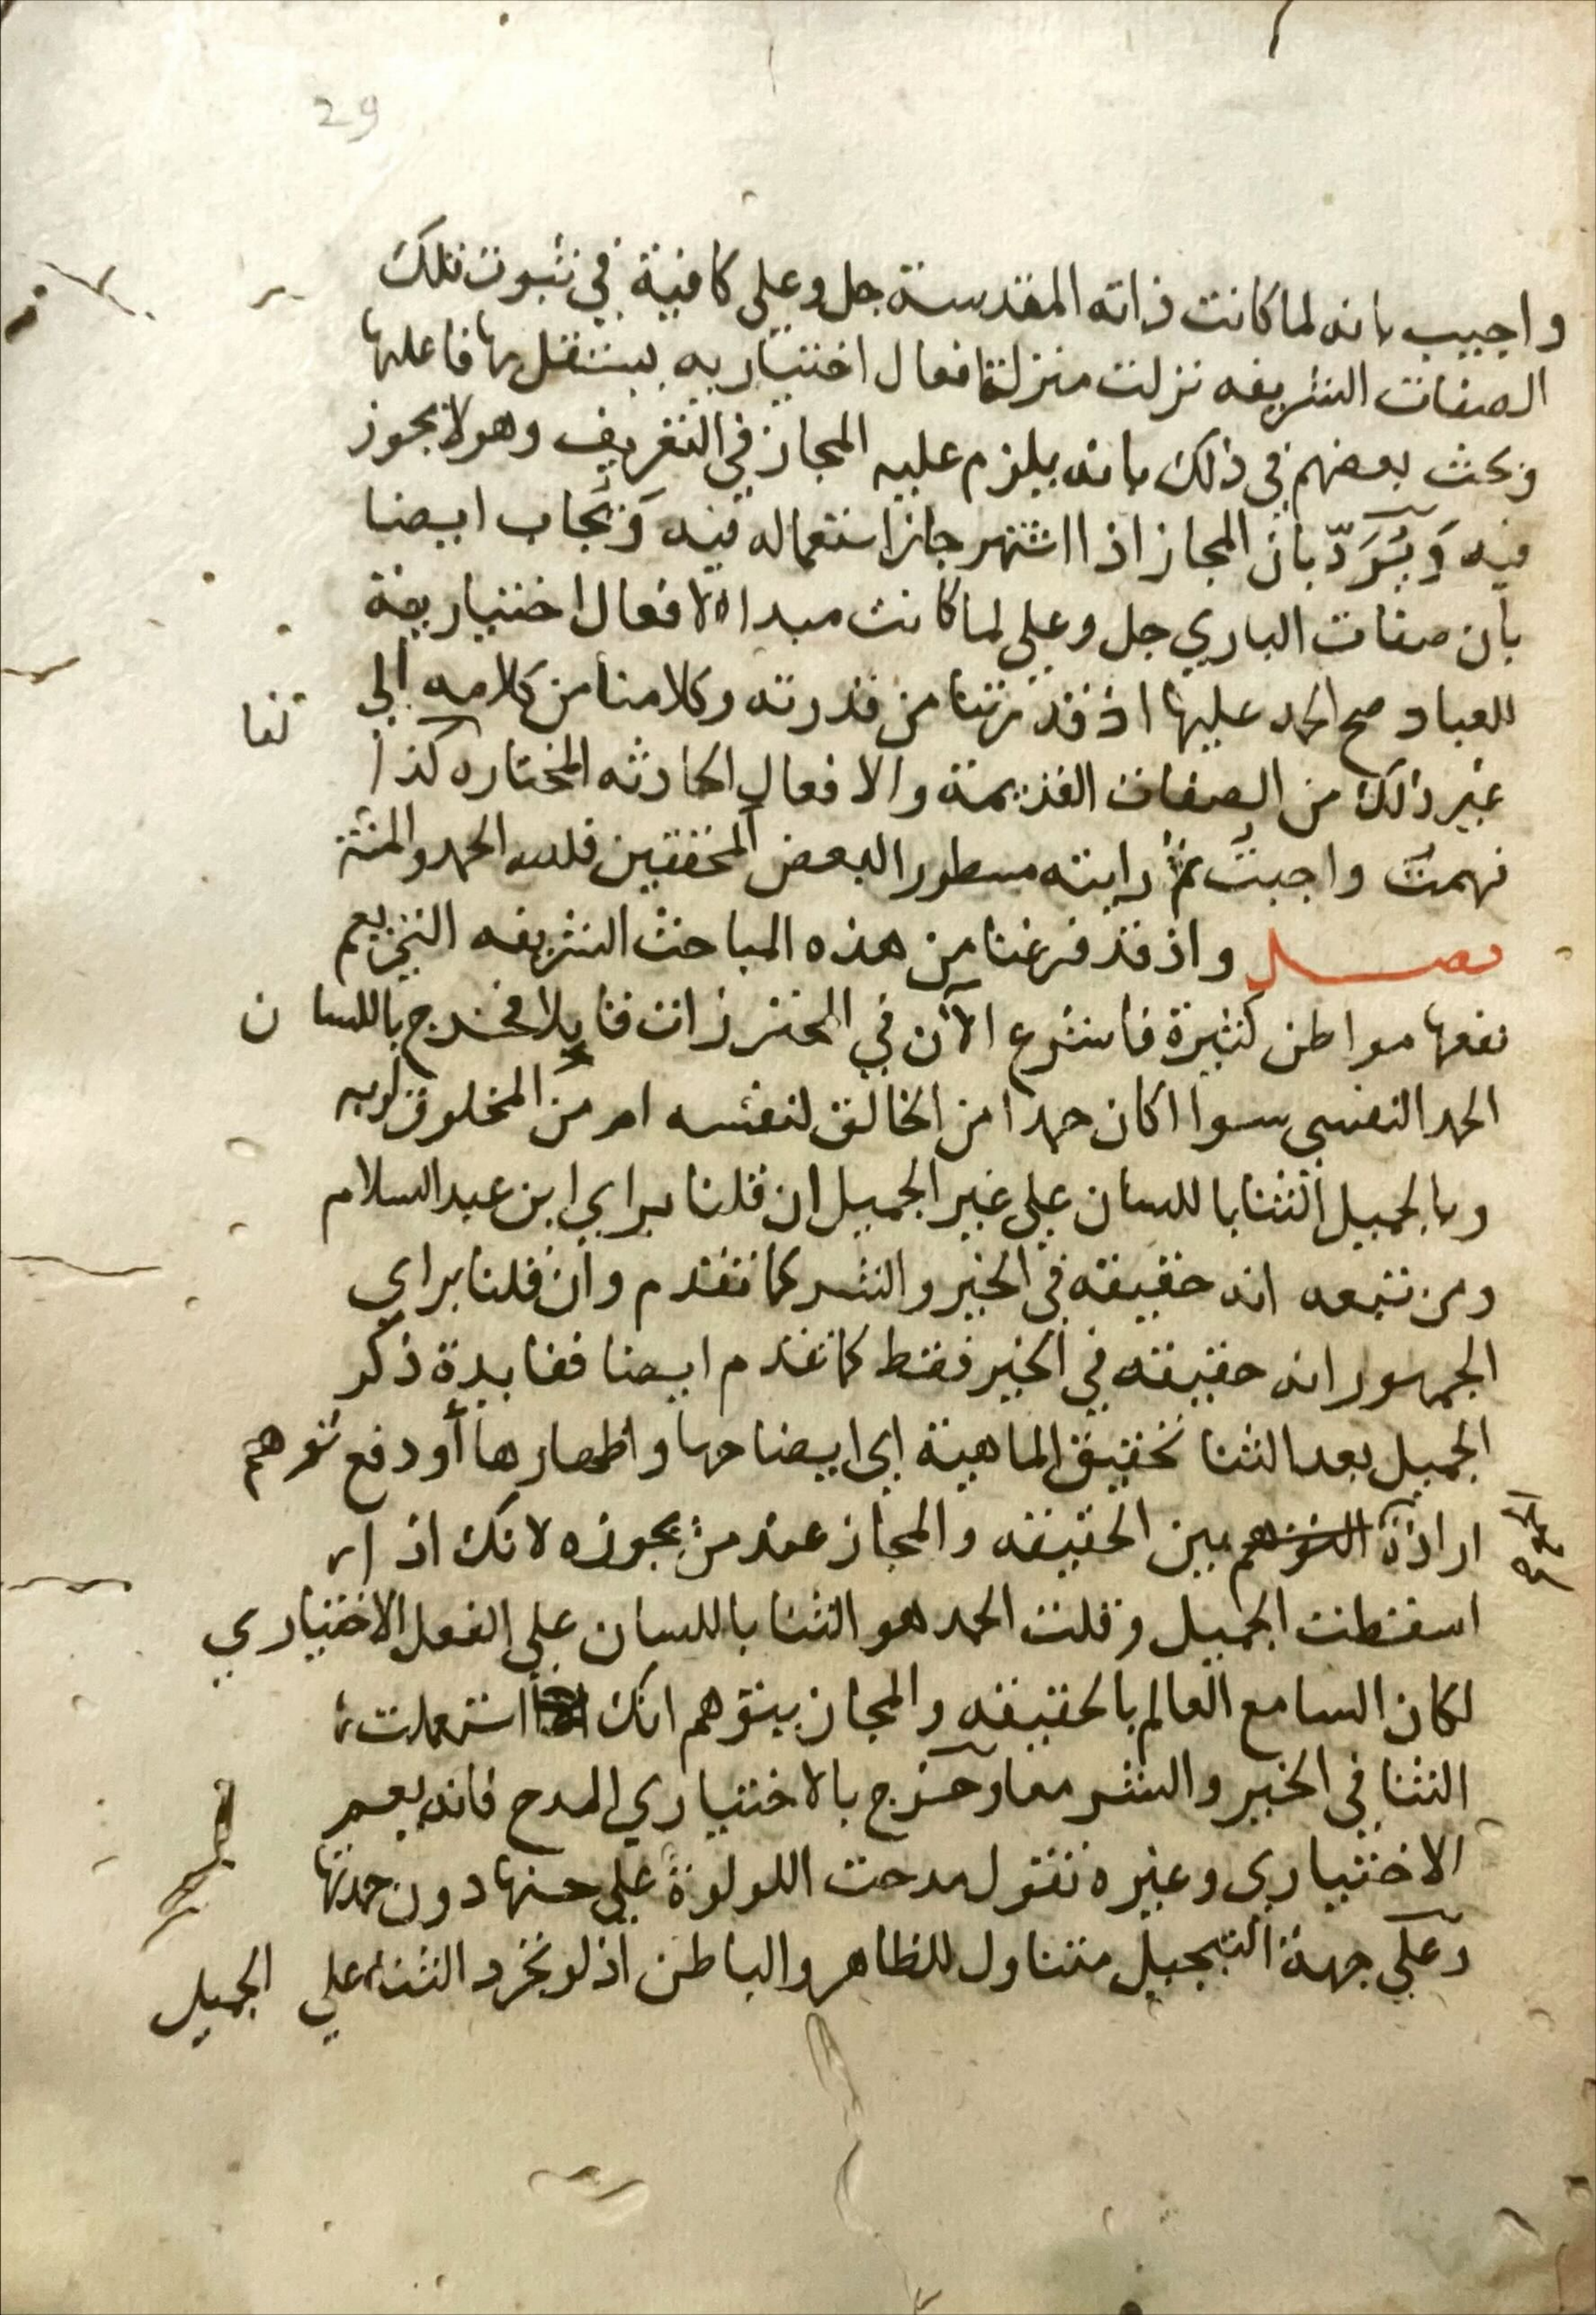 29
واجيب بانه لما كانت ذاته المقدسة جل وعلى كافية في ثبوت تلك
الصفات الشريفه نزلت منزلة افعال اختياريه يستقل بها فاعلها
وبحث بعضهم في ذلك بانه يلزم عليه المجاز في التعريف وهو لا يجوز
فيه وَيُرَدّ بان المجاز اذا اشتهر جاز استعماله فيه وَيجاب ايضا
بان صفات الباري جل وعلى لما كانت مبداء لافعال اختيارية
للعباد صح الحمد عليها اذ قدرتنا من قدرته وكلامنا من كلامه الي
غير ذلك من الصفات القديمة والافعال الحادثه المختاره كذا
فهمت واجبت ثم رايته مسطورا لبعض المحققين فلله الحمد والمنة
فصل واذ قد فرغنا من هذه المباحث الشريفه التي يعم
نفعها مواطن كثيرة فلنشرع الآن في المحترزات قايلا فخرج باللسان
الحمد النفسي سوا اكان حمدا من الخالق لنفسه ام من المخلوق لربه
وبالجميل الثنا باللسان علي غير الجميل ان قلنا براي ابن عبد السلام
ومن تبعه انه حقيقته في الخير والشر كما تقدم وان قلنا براي
الجمهور انه حقيقته في الخير فقط كما تقدم ايضا ففايدة ذكر
الجميل بعد الثنا تحقيق الماهية اي ايضاحها واظهارها أو دفع توهم
ارادة التوهم بين الحقيقه والمجاز عند من يجوزه لانك اذا
الجمع
اسقطت الجميل وقلت الحمد هو الثنا باللسان علي الفعل الاختياري
لكان السامع العالم بالحقيقه والمجاز يتوهم انك استعملت
الثنا في الخير والشر معا وخرج بالاختياري المدح فانه يعم
الاختياري وغيره تقول مدحت اللولوة علي حسنها دون حمدتها
وعلي جهة التبجيل متناول للظاهر والباطن اذ لو تجرد الثناء علي الجميل